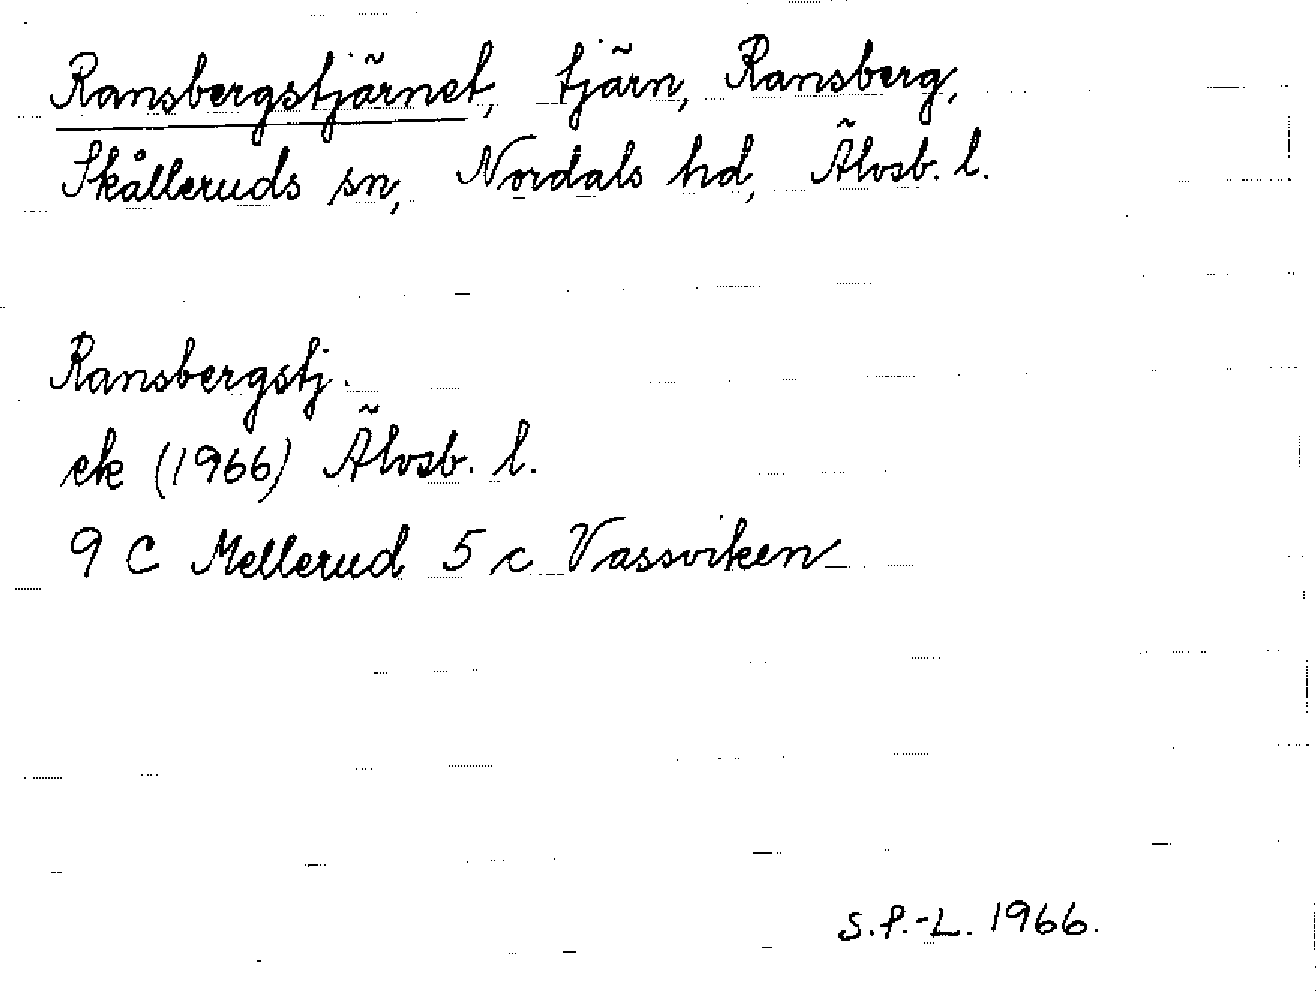 Ransbergstjärnet, tjärn, Ransberg,
Skålleruds sn, Nordals hd, Älvsb. l.
Ransbergstj.
ek (1966) Älvsb. l.
9 C Mellerud 5 c Vassviken
S.P.-L. 1966.